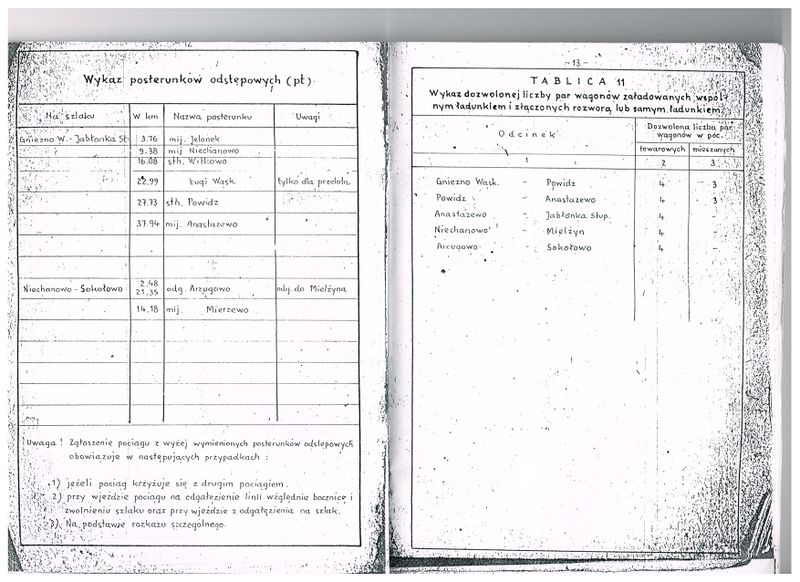 12
Wykaz posterunków odstępowych (pt)
Na szlaku W km Nazwa posterunku Uwagi
Gniezno W. - Jabłonka St. 3.76 mij. Jelonek
9.38 mij Niechanowo
16.08 sth. Witkowo
22.99 Ługi Wąsk. tylko dla przełoln.
27.73 sth. Powidz
37.94 mij. Anastazewo
Niechanowo - Sokołowo 2.48
21.35 odg. Arcugowo odg. do Mielżyna
14.18 mij. Mierzewo
Uwaga! Zgłoszenie pociągu z wyżej wymienionych posterunków odstępowych
obowiązuje w następujących przypadkach :
1) jeżeli pociąg krzyżuje się z drugim pociągiem.
2) przy wjeździe pociągu na odgałęzienie linii względnie bocznicę i
zwolnieniu szlaku oraz przy wjeździe z odgałęzienia na szlak.
3) Na podstawie rozkazu szczególnego.
- 13 -
TABLICA 11
Wykaz dozwolonej liczby par wagonów załadowanych wspól-
nym ładunkiem i złączonych rozworą lub samym ładunkiem.
Odcinek Dozwolona liczba par
wagonów w poc.
towarowych mieszanych
1 2 3
Gniezno Wąsk. - Powidz 4 3
Powidz - Anastazewo 4 3
Anastazewo - Jabłonka Słup. 4 -
Niechanowo - Mielżyn 4 -
Arcugowo - Sokołowo 4 -